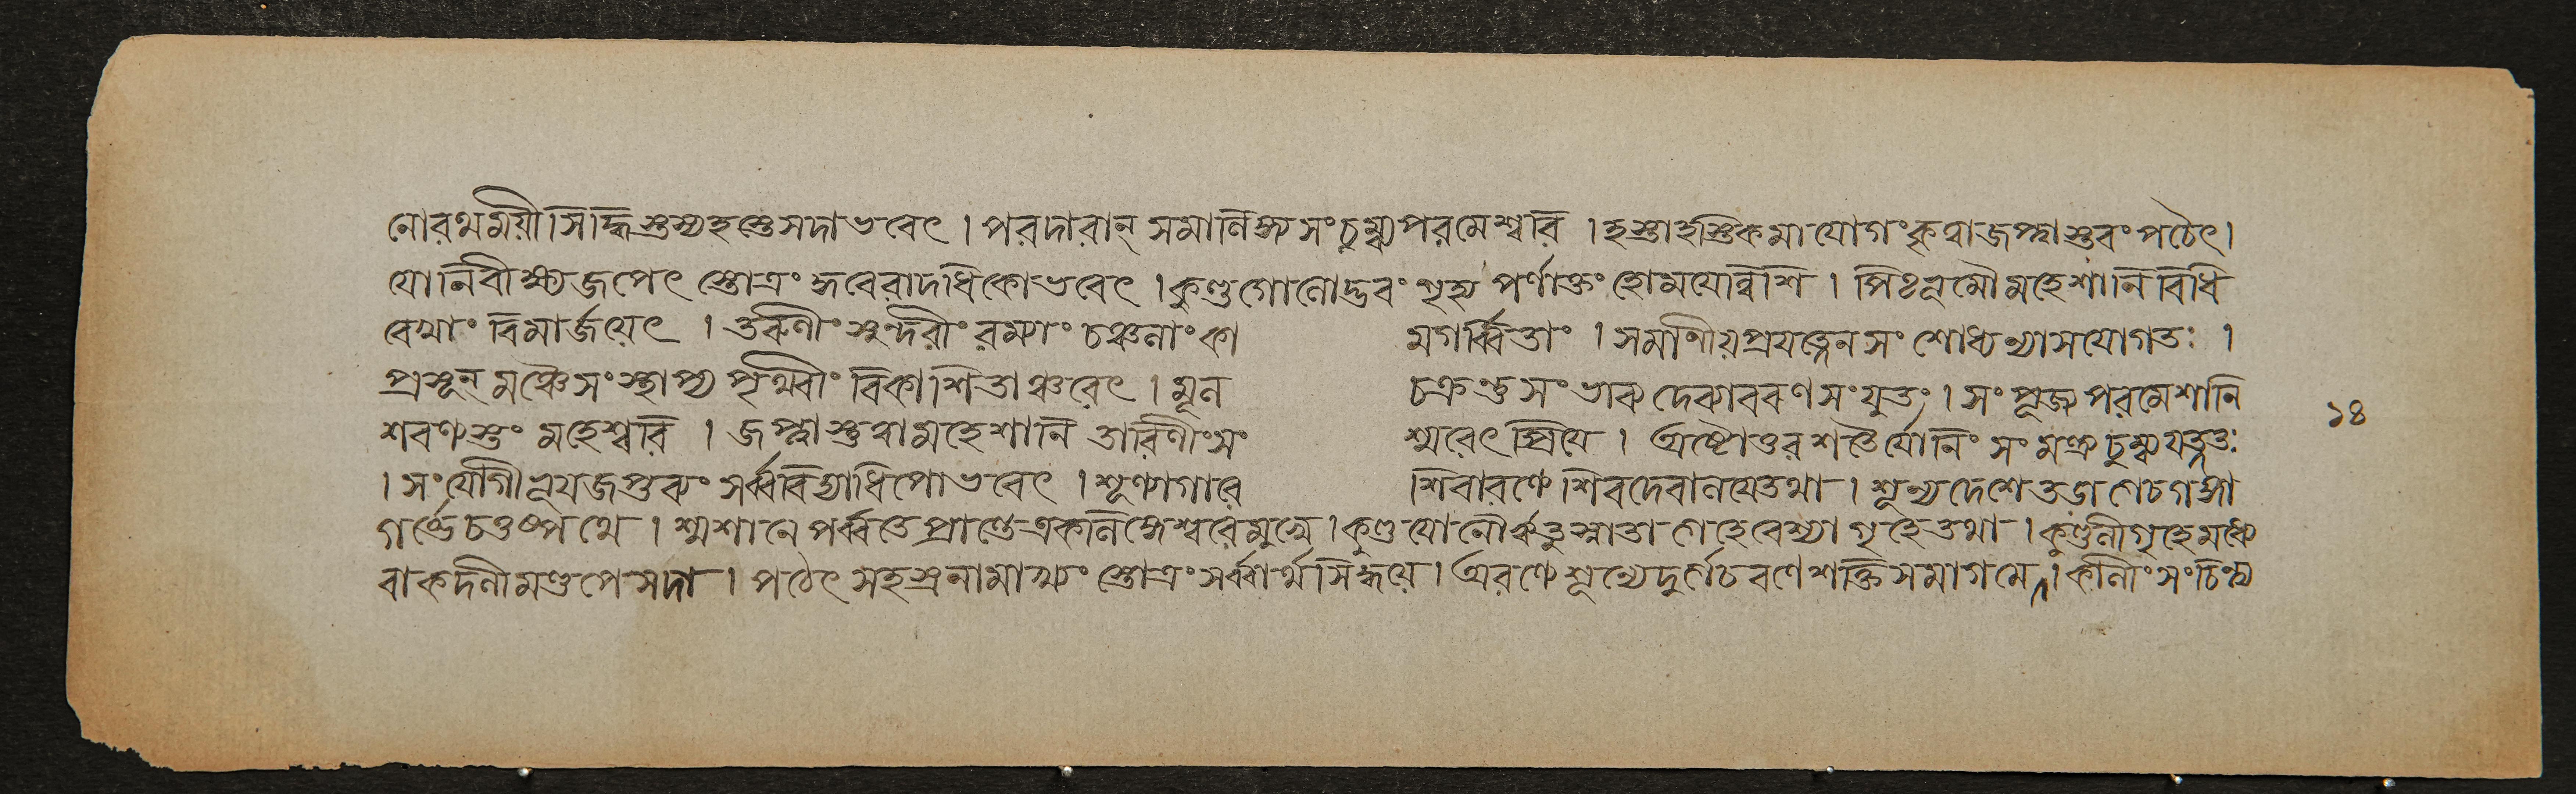 নোরথময়ী সিদ্ধিস্তস্য হস্তে সদা ভবেৎ । পরদারান্ সমালিঙ্গ্য সংচুম্ব্য পরমেশ্বরি । হস্তাহস্তিকমা যোগং কৃত্বা জপ্ত্বা স্তবং পঠেৎ ।
যোনিং বীক্ষ্য জপেৎ স্তোত্রং কুবেরাদধিকো ভবেৎ । কুণ্ডগোলোদ্ভবং গৃহ্য পর্ণাক্তং হোময়েন্নিশি । মহেশানি বিধি
রেখাং বিমার্জয়েৎ । তরুণীং সুন্দরীং রম্যাং চঞ্চলাং কা মগর্ব্বিতাং । সমানীয় প্রযত্নেন সংশোধ্য ন্যাসযোগতঃ ।
প্রসূন মঞ্চে সংস্থাপ্য পৃথিবীং বিকাশিতাঞ্চরেৎ । মূল চক্রন্তু সংভাব্য দেব্যাবরণ সংযুতং । সংপূজ্য পরমেশানি
মহেশ্বরি । জপ্ত্বা স্তুত্বা মহেশানি তারিণীং সং স্মরেৎ প্রিয়ে । অষ্টোত্তর শতৈর্যোনিং সংমন্ত্র্য চুম্ব্য যত্নতঃ
। সংযোগী সর্ব্ববিদ্যাধিপো ভবেৎ । শূণ্যাগারে শিবারণ্যে শিবদেবালয়ে তথা । শূন্যদেশে তড়াগে চ গঙ্গা
গর্ভে চতুষ্পথে । শ্মশানে পর্ব্বতে প্রান্তে একলিঙ্গেশ্বরে মুখে । কুণ্ড যোনৌ ঋতুস্নাতা গেহে বেশ্যা গৃহে তথা । কুট্টনীগৃহে মধ্যে
বা কদলীমণ্ডপে সদা । পঠেৎ সহস্রনামাখ্যং স্তোত্রং সর্ব্বার্থসিদ্ধয়ে । অরণ্যে শূন্যে দুর্গে চ রণে শক্তিসমাগমে । কালীং সংচিন্ত্য
১৪